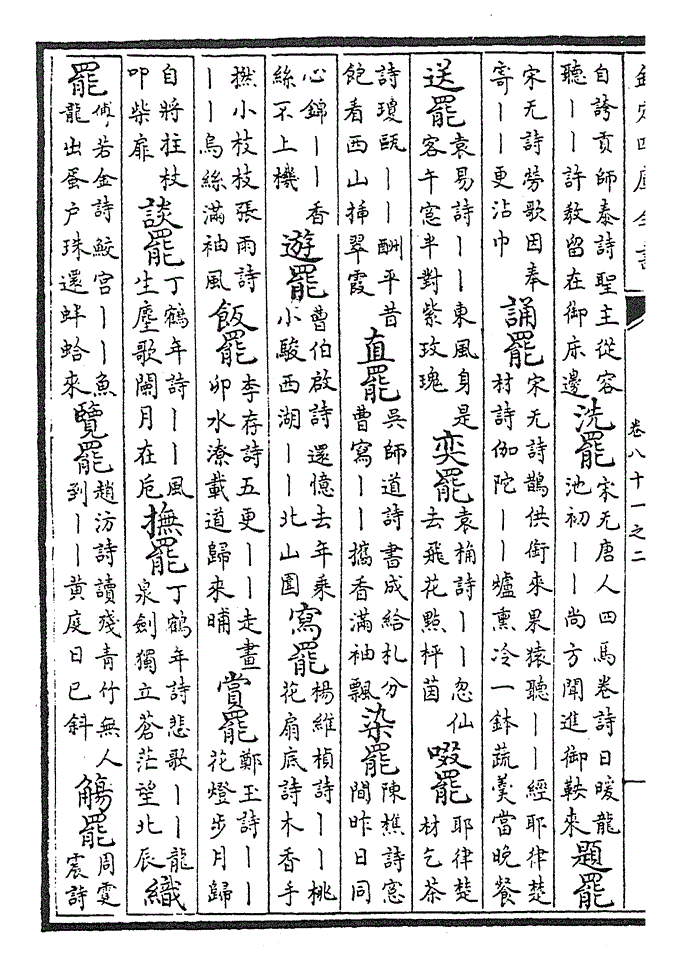 欽定四庫全書　卷八十一之二
自誇貢師泰詩聖主從容聽丨丨許教留在御床邊洗罷宋无唐人四馬卷詩日暖龍池初丨丨尚方聞進御鞍來題罷
宋无詩勞歌因奉寄丨丨更沾巾誦罷宋无詩鵲供銜來果猿聽丨丨經耶律楚材詩伽陀丨丨爐熏冷一鉢蔬羹當晚餐
送罷袁易詩丨丨東風身是客午窓半對紫玫瑰奕罷袁桷詩丨丨忽仙去飛花點枰茵啜罷耶律楚材乞茶
詩瓊甌丨丨酬平昔飽看西山揷翠霞直罷吳師道詩書成給札分曹寫丨丨攜香滿袖飄染罷陳樵詩窓間昨日同
心錦丨丨香絲不上機遊罷曹伯啟詩還憶去年乘小駿西湖丨丨北山園寫罷楊維楨詩丨丨桃花扇底詩木香手
撚小枝枝張雨詩丨丨烏絲滿袖風飯罷李存詩五更丨丨走晝卯水潦載道歸來晡賞罷鄭玉詩丨丨花燈步月歸
自將拄杖叩柴扉談罷丁鶴年詩丨丨風生麈歌闌月在卮撫罷丁鶴年詩悲歌丨丨龍泉劍獨立蒼茫望北辰織
罷傅若金詩鮫宮丨丨魚龍出蜑户珠還蚌蛤來覽罷趙汸詩讀殘青竹無人到丨丨黄庭日已斜觴罷周霆震詩